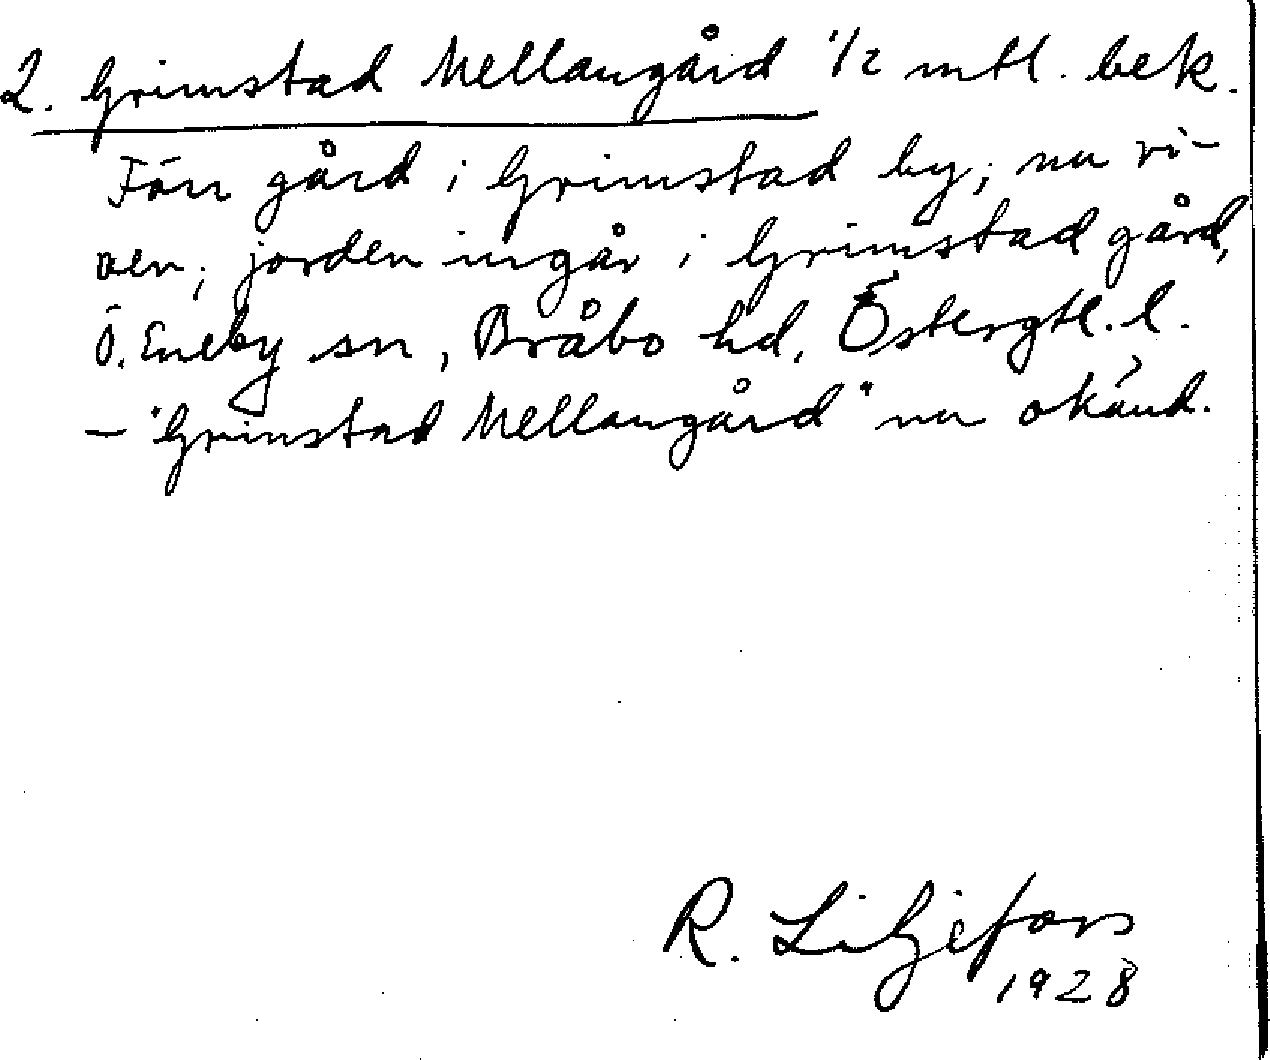 2. Grimstad Mellangård 1/2 mtl. bek.
Förr gård i Grimstad by; nu ri-
ven; jorden ingår i Grimstad gård,
Ö. Eneby sn, Bråbo hd, Östergtl. l.
– "Grimstad Mellangård" nu okänd.
R. Liljefors
1928